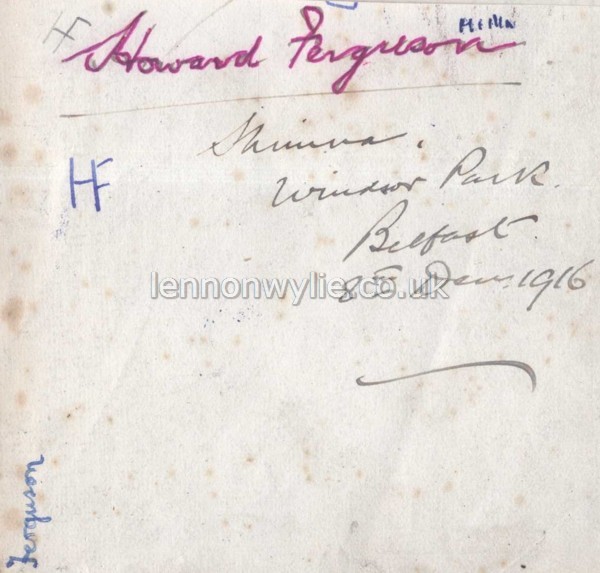 HF
Howard Ferguson
HF
Shimna.
Windsor Park.
Belfast.
1916
lennonwylie.co.uk
Ferguson